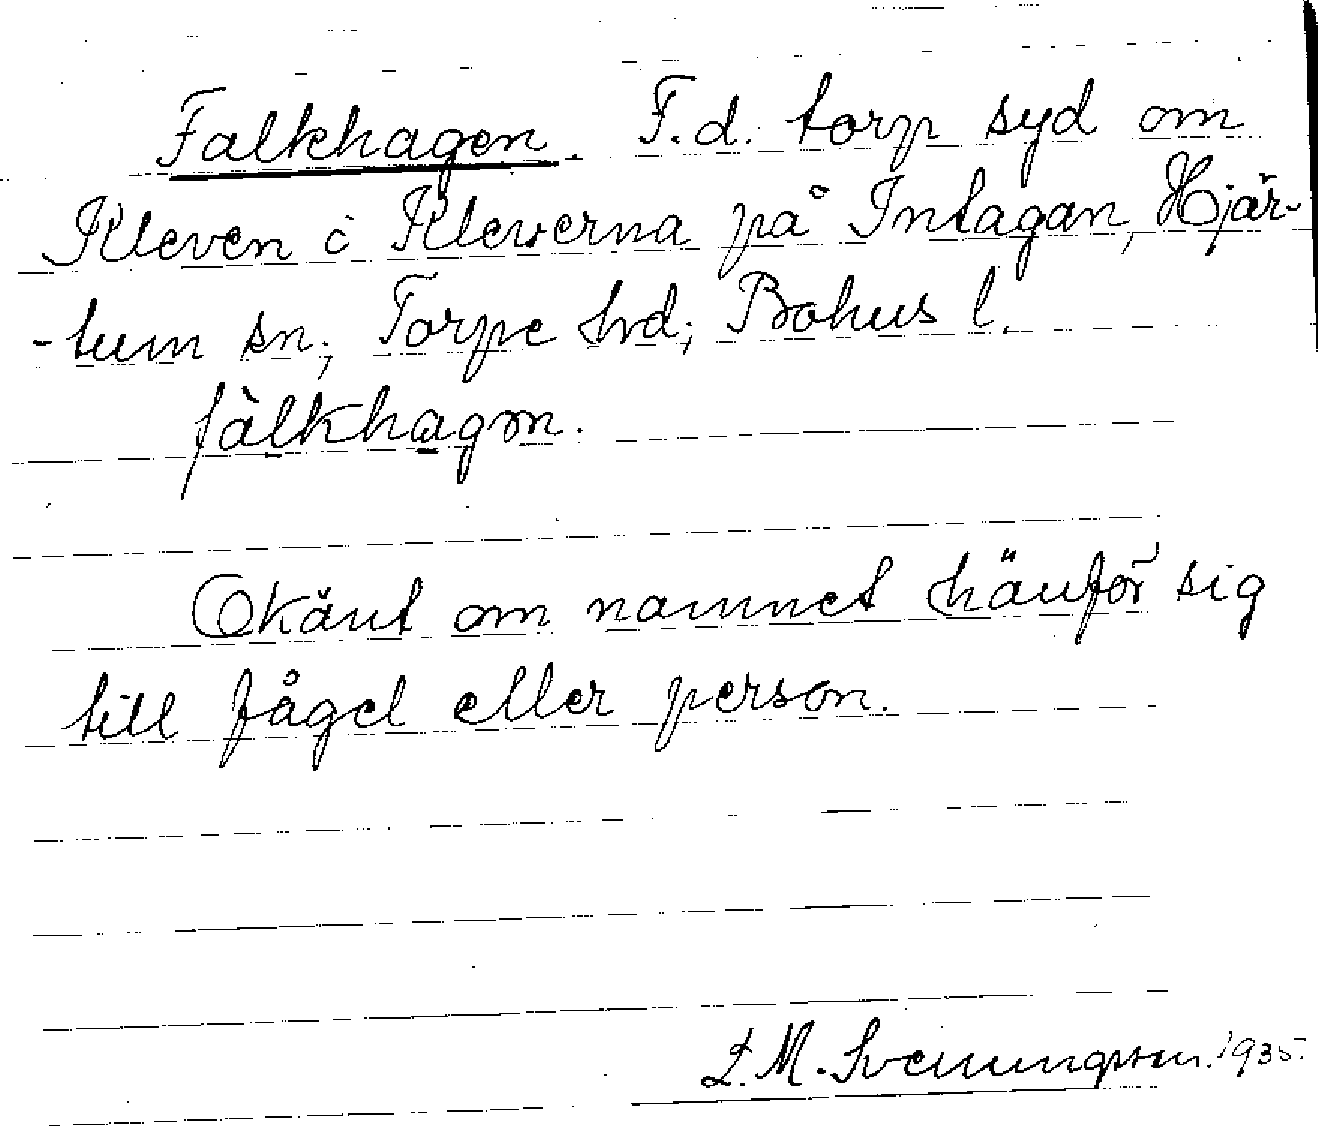 Falkhagen. F.d. torp syd om
Kleven i Kleverna på Intagan, Hjär-
-tum sn, Torpe hd, Bohus l.
fàlkhagən.
Okänt om namnet hänför sig
till fågel eller person.
L. M. Svenungsson. 1935.